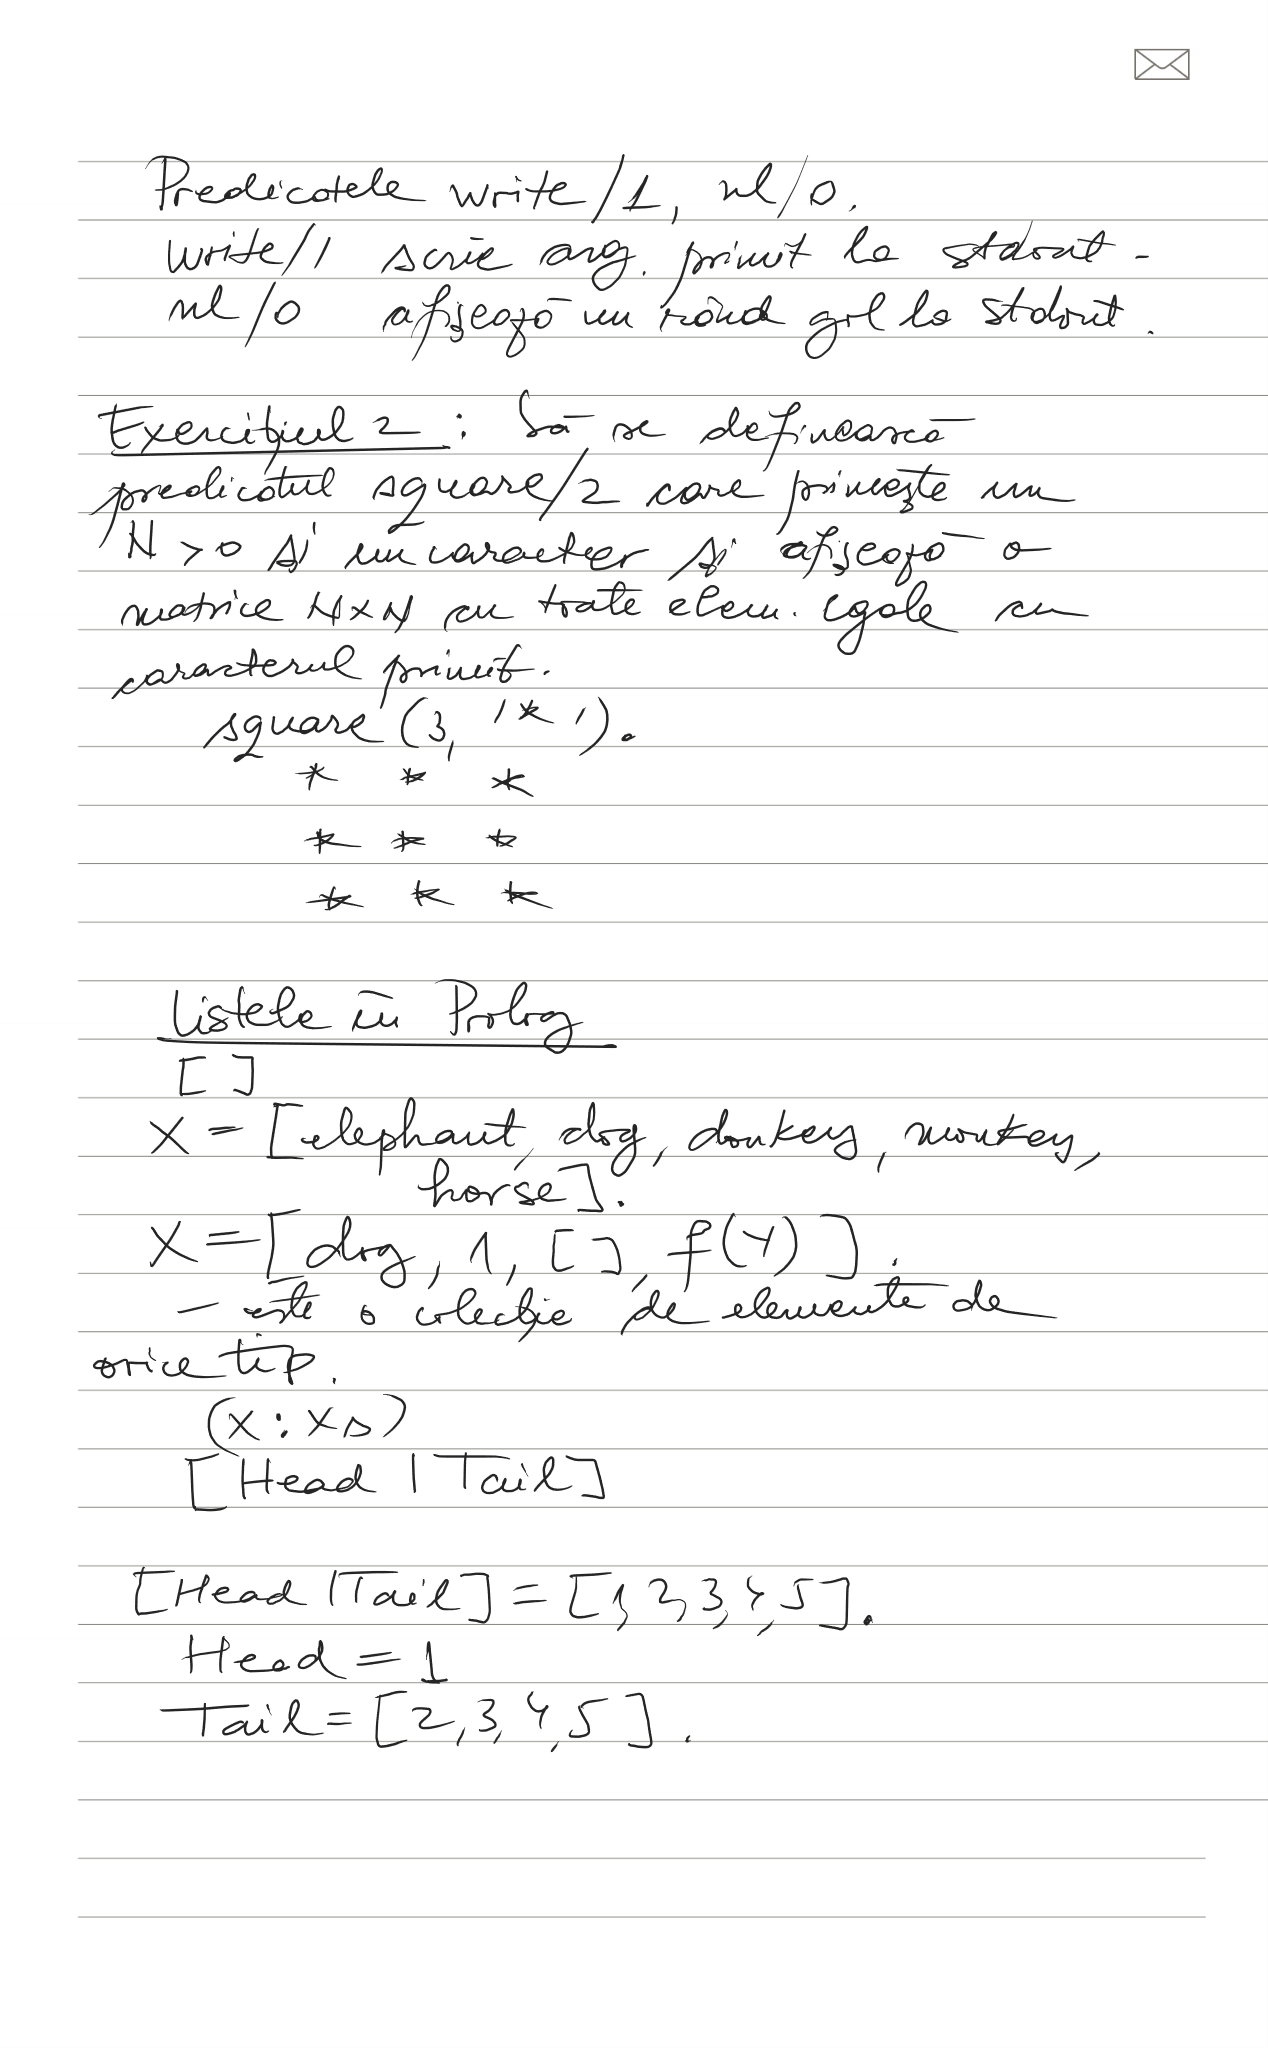 Predicatele write/1, nl/0.
write/1 scrie arg. primit la stdout.
nl/0 afișează un rând gol la stdout.
Exercițiul 2 : Să se definească
predicatul square/2 care primește un
N > 0 și un caracter și afișează o
matrice N×N cu toate elem. egale cu
caracterul primit.
square (3, '*').
* * *
* * *
* * *
Listele în Prolog
[ ]
X = [elephant, dog, donkey, monkey,
horse].
X = [dog, 1, [ ], f(Y)].
- este o colecție de elemente de
orice tip.
(x : xs)
[Head | Tail]
[Head | Tail] = [1, 2, 3, 4, 5].
Head = 1
Tail = [2, 3, 4, 5].